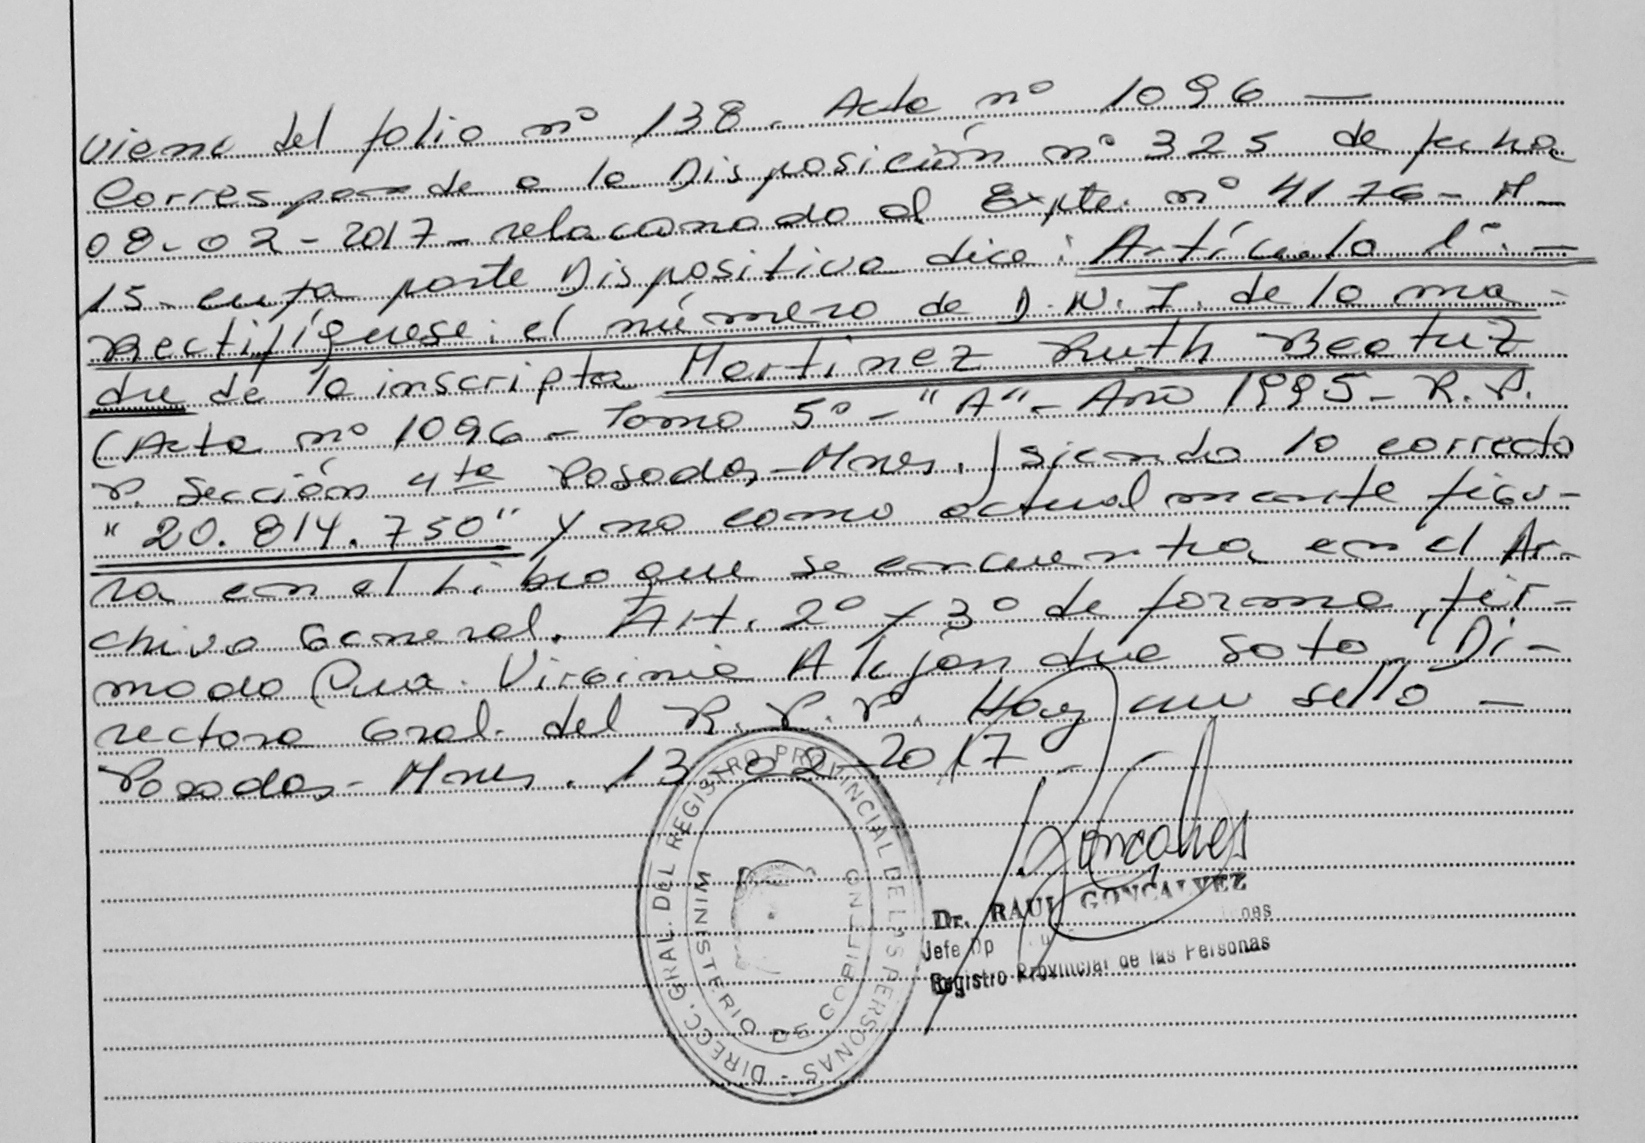 Viene del folio nº 138. Acta nº 1096 —
Corresponde a la Disposición nº 325 de fecha
08-02-2017- relacionado al Expte. nº 4176- M-
15- cuya parte Dispositiva dice: Artículo 1º. —
Rectifíquese: el número de D.N.I. de la ma-
dre de la inscripta Martinez Ruth Beatriz
(Acta nº 1096 - Tomo 5º - "A" - Año 1995 - R.P.
P. Sección 4ta Posadas - Mnes.) siendo lo correcto
"20.814.750" y no como actualmente figu-
ra en el Libro que se encuentra en el Ar-
chivo General. Art. 2º y 3º de forma, fir-
mado Virginia Alejandra Soto, Di-
rectora Gral. del R.P.P. Hay un sello -
Posadas - Mnes. 13-02-2017
DIRECC. GRAL. DEL REGISTRO PROVINCIAL DE LAS PERSONAS -
MINISTERIO DE GOBIERNO
Goncalves
Dr. RAUL GONCALVEZ
Jefe Dp
Registro Provincial de las Personas